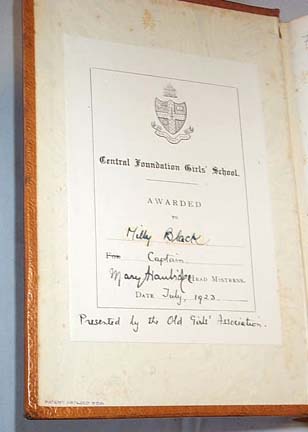 Central Foundation Girls' School.
AWARDED
TO
Milly Black
For Captain
Mary Hanbidge HEAD MISTRESS.
DATE July, 1923
Presented by the Old Girls' Association.